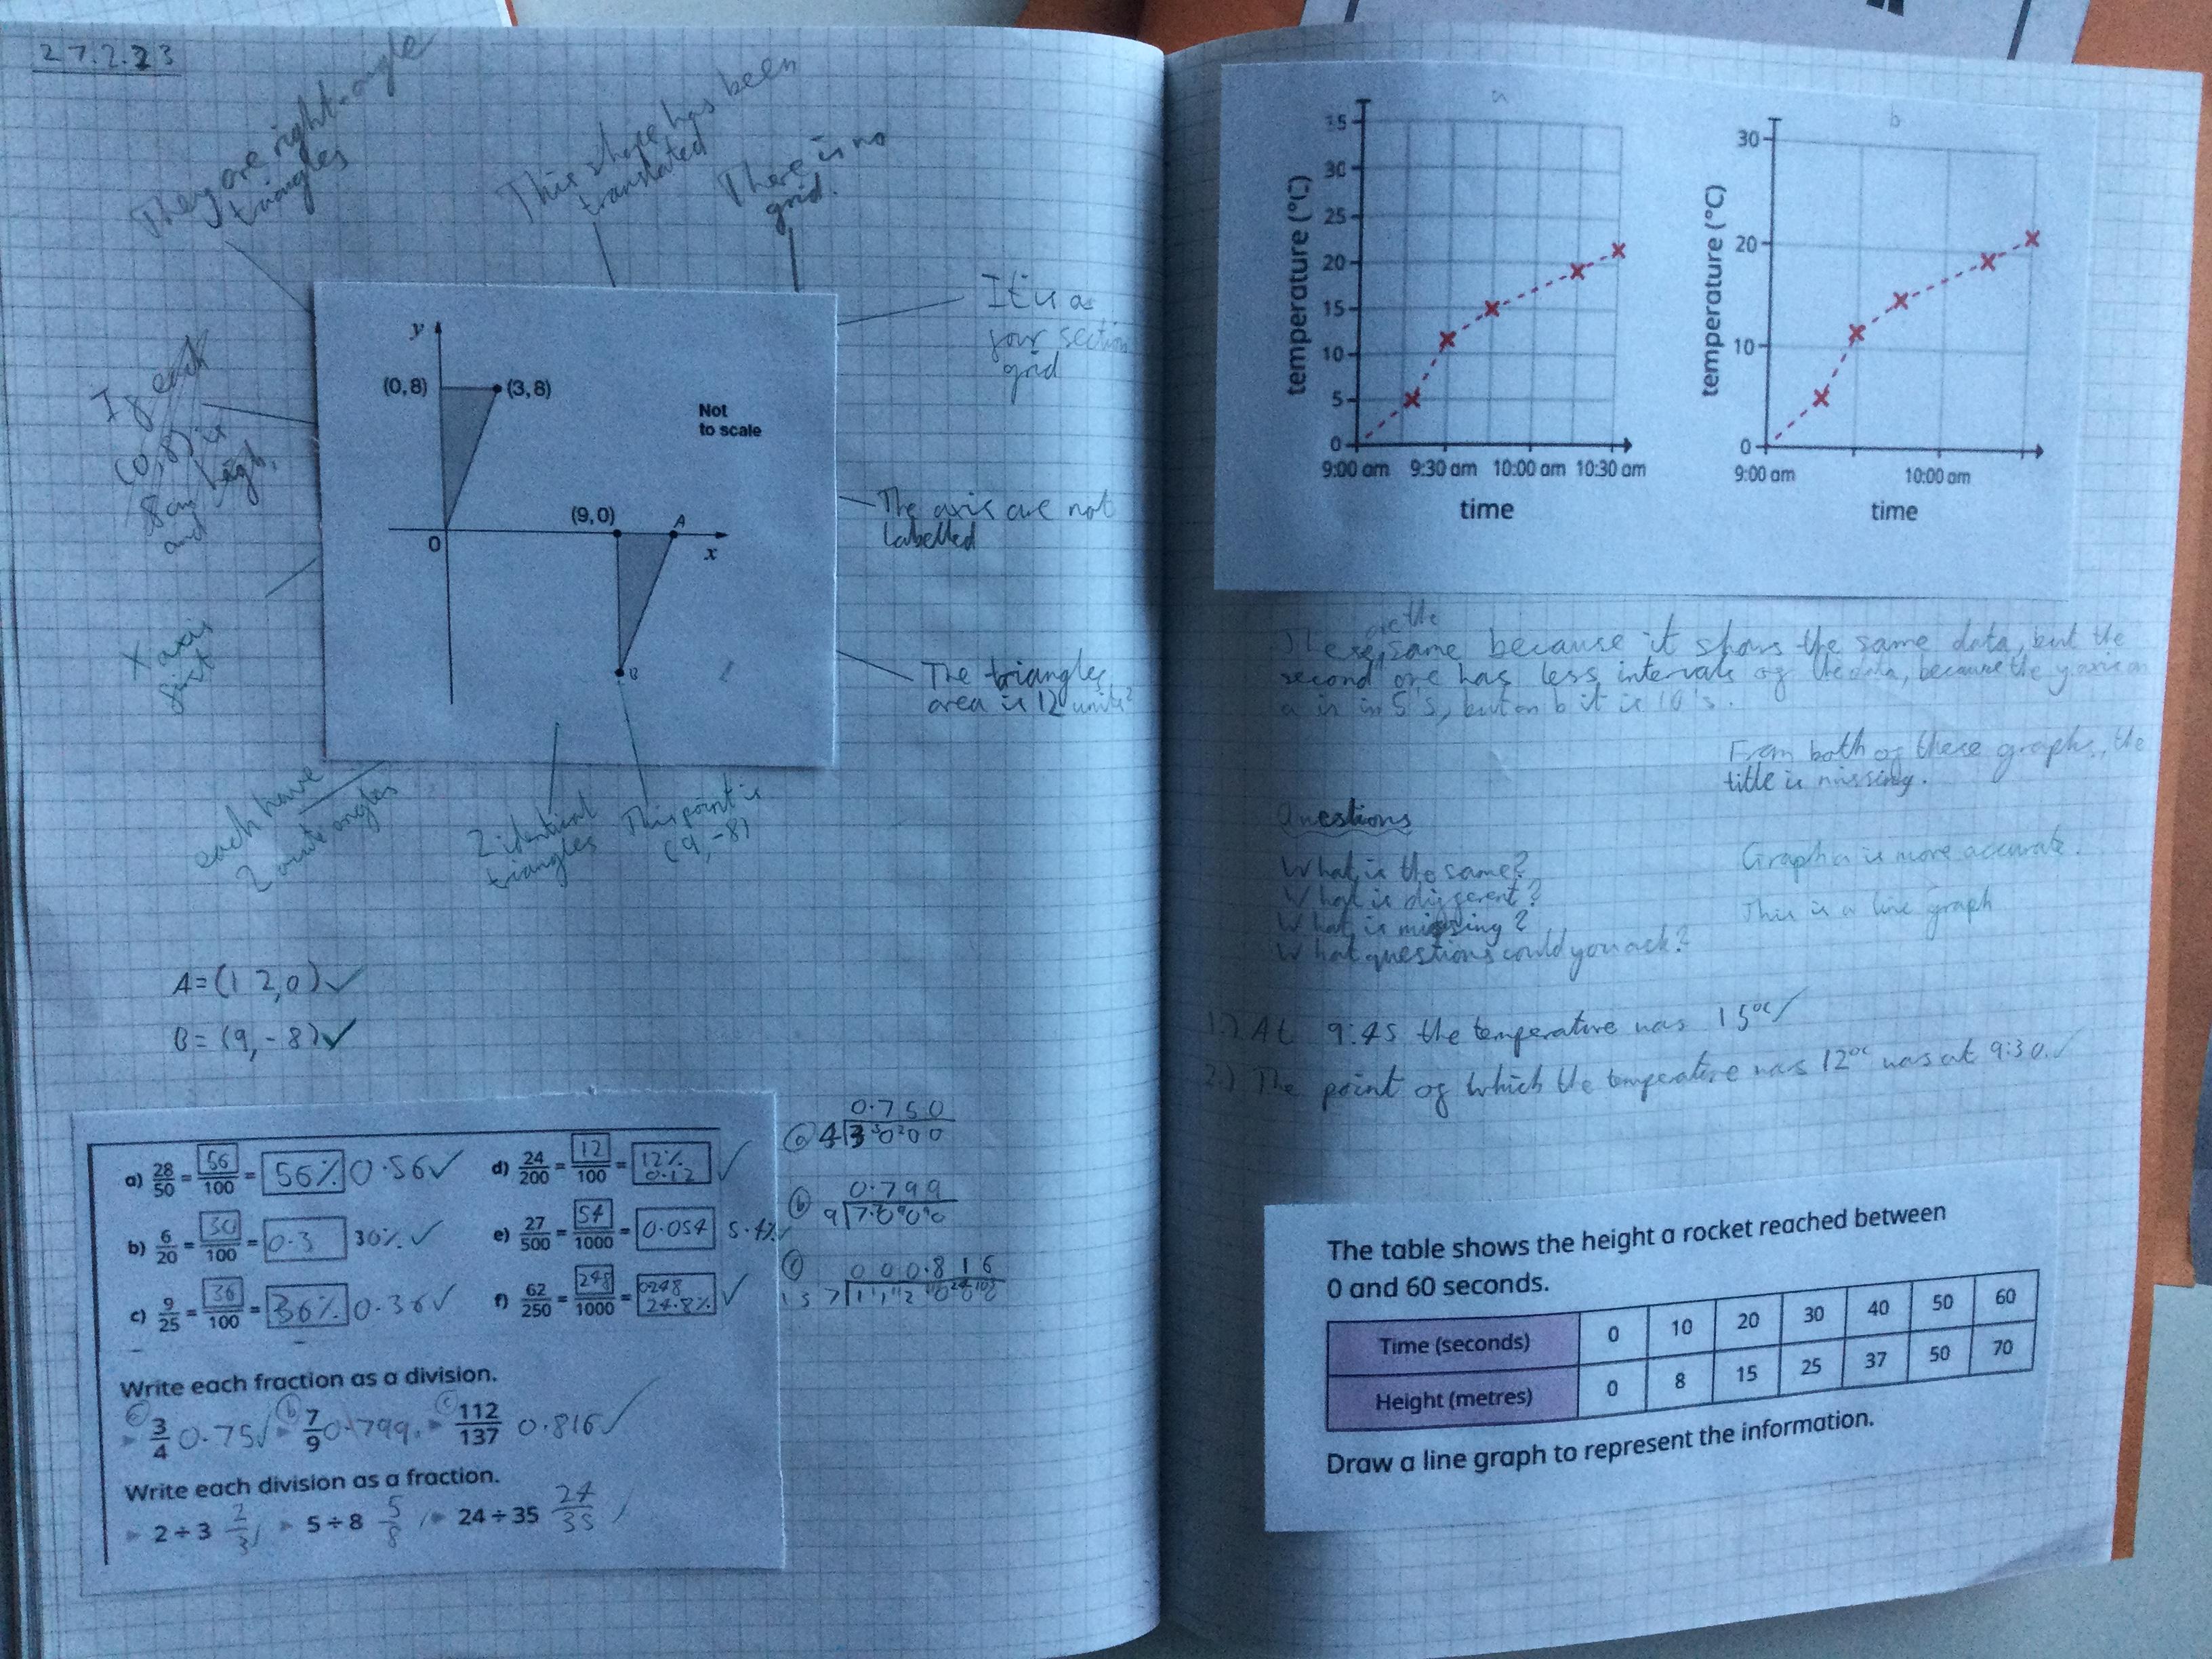 27.2.23
They are right-angle
triangles
This shape has been
translated
There is no
grid.
It is a
four section
grid
If each
(0,8) is
8cm high,
and
y
(0,8)
(3,8)
Not
to scale
(9,0)
A
0
x
B
The axis are not
labelled
The triangles
area is 12 units²
X axis
first
each have
2 acute angles
2 identical
triangles
This point is
(9,-8)
A=(12,0) ✓
B=(9,-8) ✓
a) 28/50 = 56/100 = 56% 0.56 ✓
b) 6/20 = 30/100 = 0.3 30% ✓
c) 9/25 = 36/100 = 36% 0.36 ✓
d) 24/200 = 12/100 = 12% 0.12 ✓
e) 27/500 = 54/1000 = 0.054 5.4% ✓
f) 62/250 = 248/1000 = 0248 24.8% ✓
Write each fraction as a division.
3/4 0.75 ✓ b 7/9 0.799. c 112/137 0.816 ✓
Write each division as a fraction.
2 ÷ 3 2/3 ✓ 5 ÷ 8 5/8 24 ÷ 35 24/35
a
0.750
4
b
0.799
9
c
000.816
137
a
35
30
25
20
15
10
5
0
temperature (°C)
9:00 am 9:30 am 10:00 am 10:30 am
time
b
30
20
10
0
temperature (°C)
9:00 am 10:00 am
time
are the
same because it shows the same data, but the
second one has less intervals of the data, because the y axis on
a is in 5's, but on b it is 10's.
From both of these graphs, the
title is missing.
Questions
What is the same?
What is different?
What is missing?
What questions could you ask?
Graph a is more accurate.
This is a line graph
1.) At 9:45 the temperature was 15°C ✓
2.) The point of which the temperature was 12°C was at 9:30. ✓
The table shows the height a rocket reached between
0 and 60 seconds.
Time (seconds) 0 10 20 30 40 50 60
Height (metres) 0 8 15 25 37 50 70
Draw a line graph to represent the information.